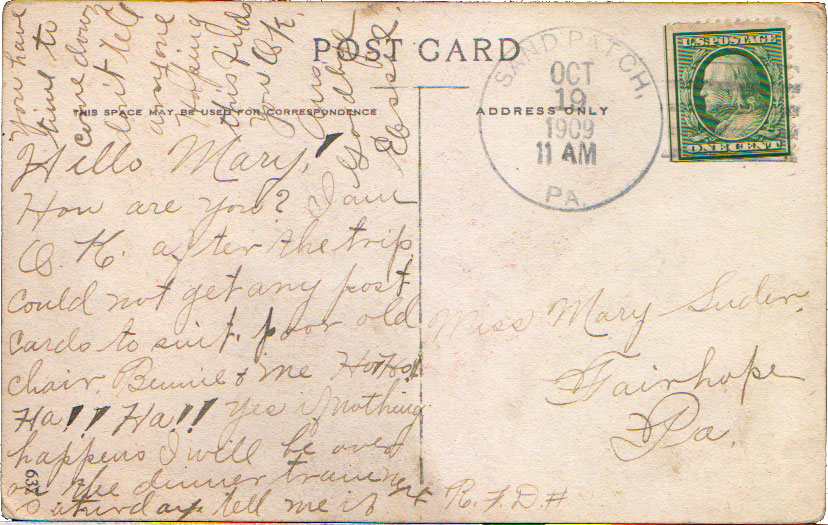 POST CARD
THIS SPACE MAY BE USED FOR CORRESPONDENCE
ADDRESS ONLY
SAND PATCH,
OCT
19
1909
11 AM
PA.
U.S. POSTAGE
ONE CENT
Hello Mary,!
How are you? I am
O. K. after the trip
could not get any post
cards to suit. poor old
chair. Bennie & me Ho!Ho!
Ha!! Ha!! yes if nothing
happens I will be over
on the dinner train next
Saturday tell me if
You have
time to
come down
don't tell
anyone
hoping
this finds
you O.K.
Goodbye
Bessie.
Miss Mary Suder,
Fairhope
Pa.
R. F. D. #
637